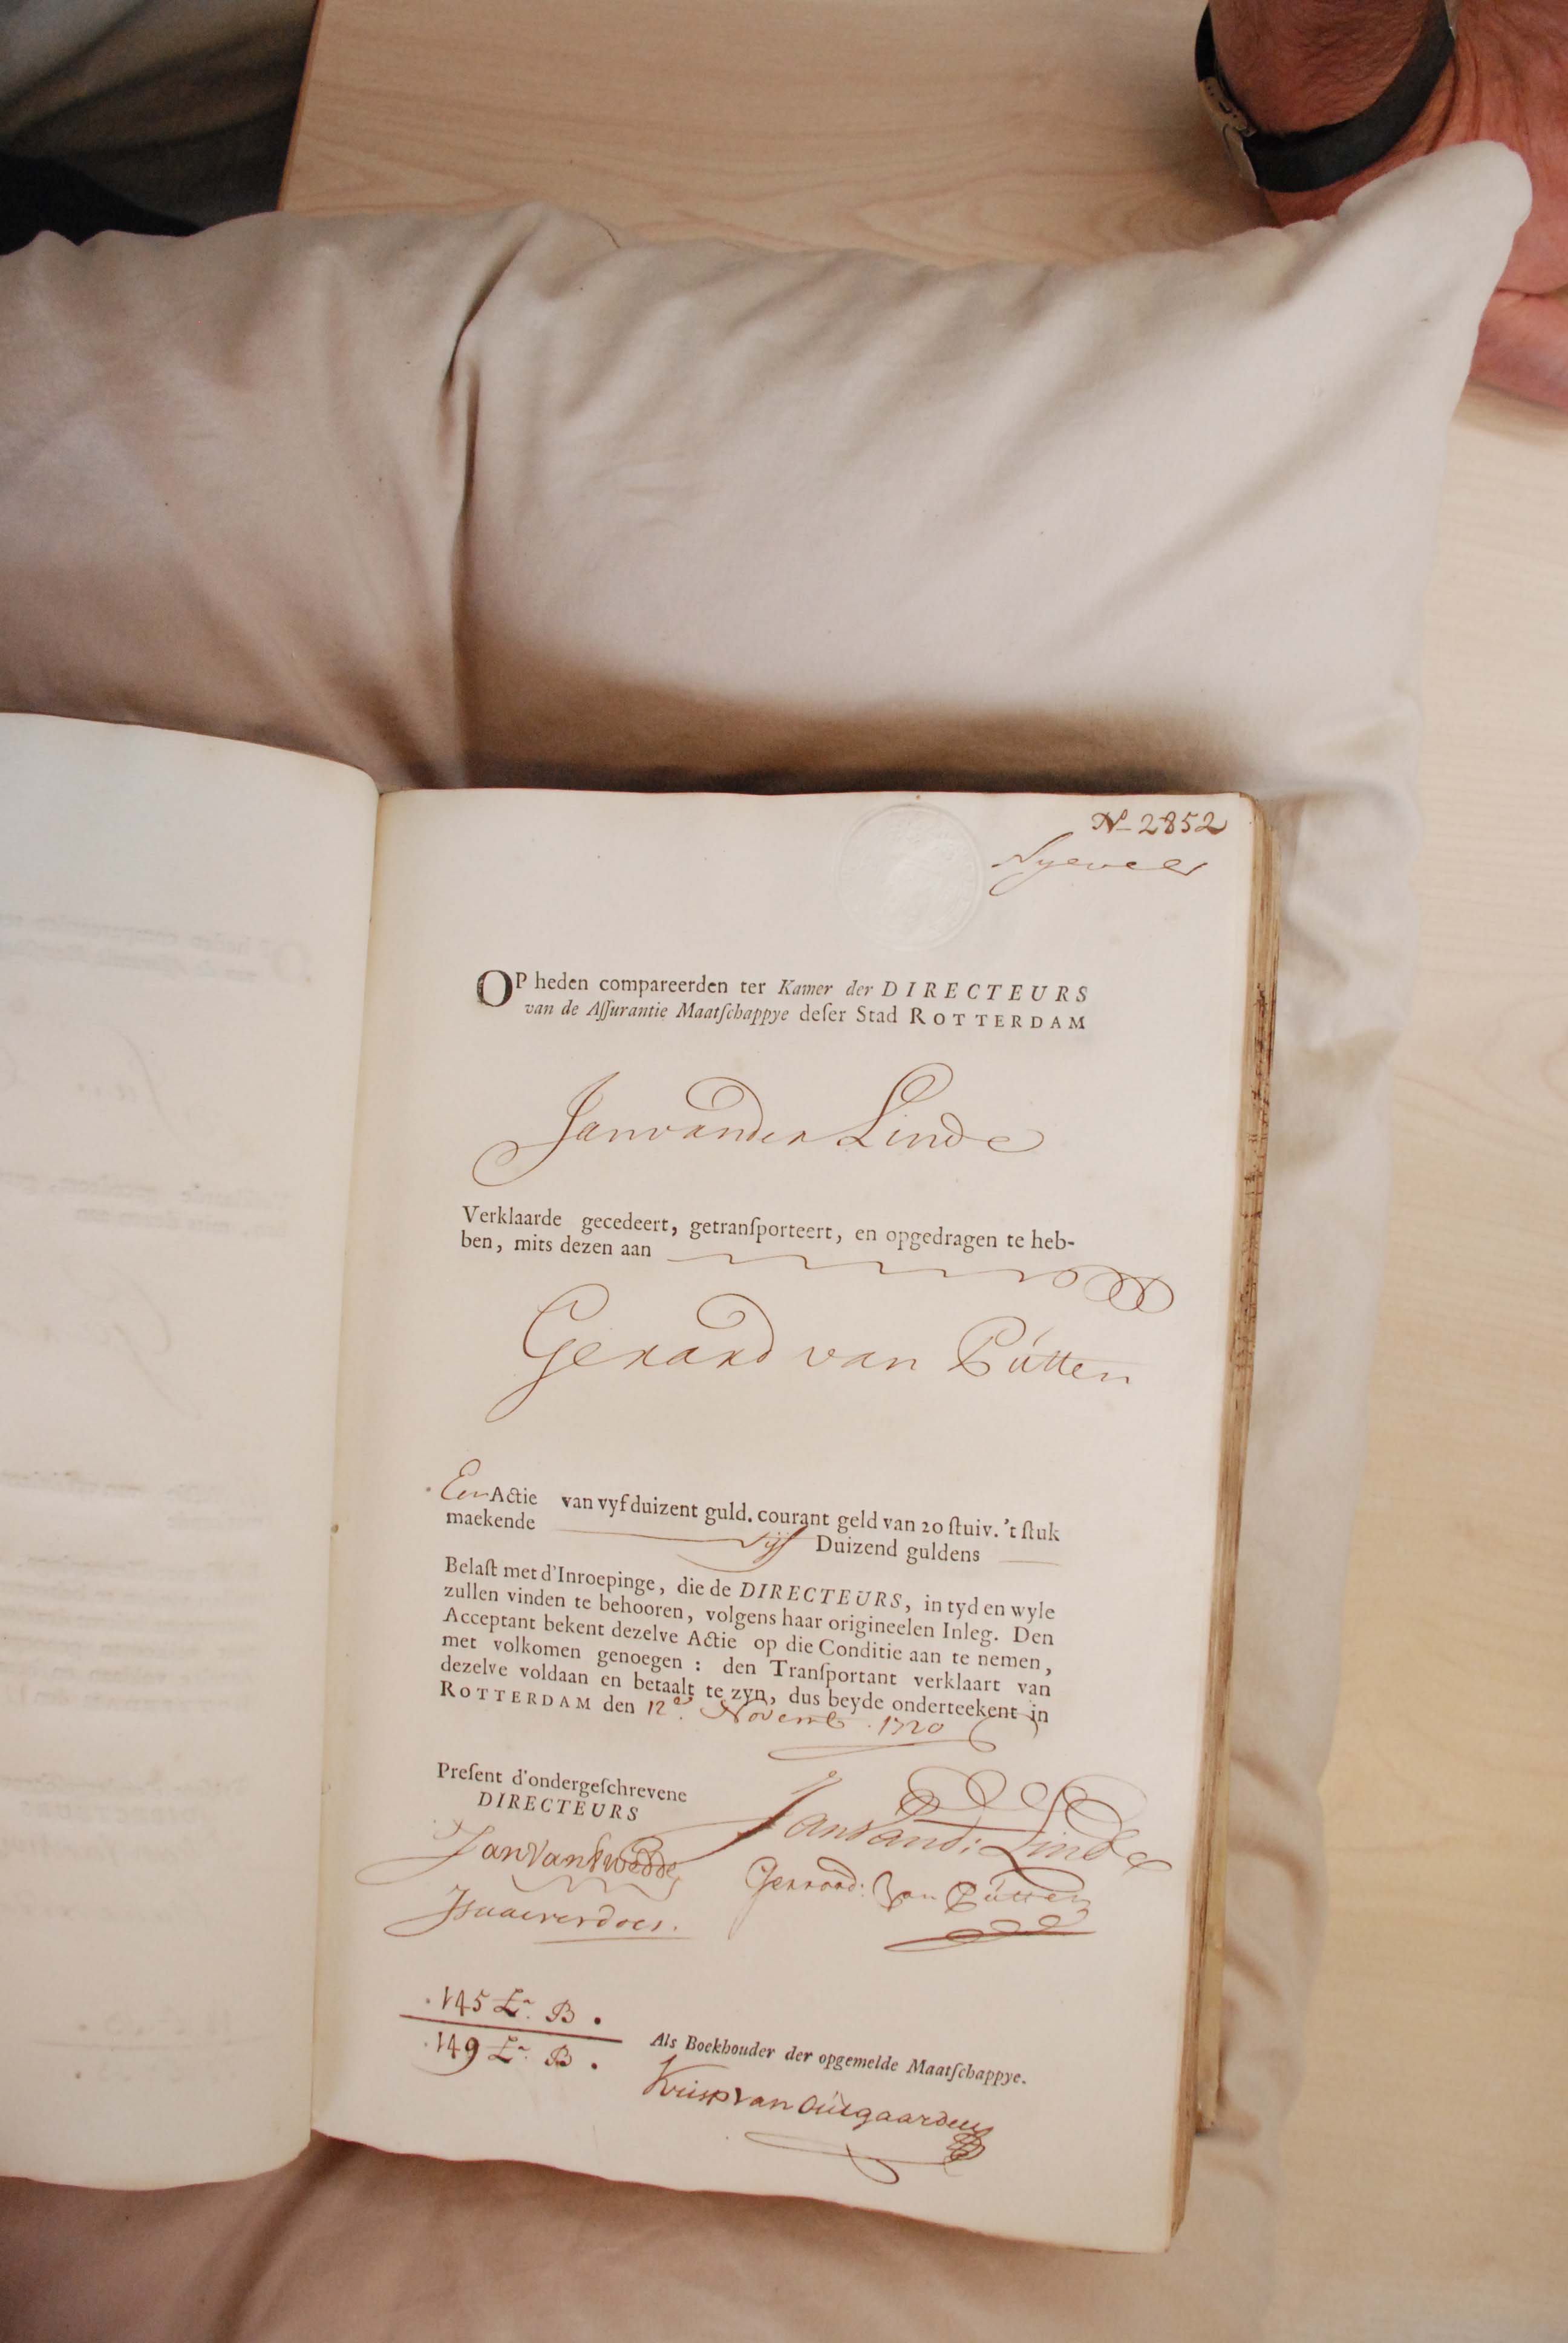 N- 2852
OP heden compareerden ter Kamer der DIRECTEURS
van de Aſſurantie Maatſchappye deſer Stad ROTTERDAM
Jan vander Linde
Verklaarde gecedeert, getranſporteert, en opgedragen te heb-
ben, mits dezen aan
Gerard van Pútten
Een Actie van vyf duizent guld. courant geld van 20 ſtuiv. 't ſtuk
maekende vijf Duizend guldens
Belaſt met d'Inroepinge, die de DIRECTEURS, in tyd en wyle
zullen vinden te behooren, volgens haar origineelen Inleg. Den
Acceptant bekent dezelve Actie op die Conditie aan te nemen,
met volkomen genoegen : den Tranſportant verklaart van
dezelve voldaan en betaalt te zyn, dus beyde onderteekent in
ROTTERDAM den 12e. Novemb 1720
Preſent d'ondergeſchrevene
DIRECTEURS
Jan Vand: Linde
Gerrard: Van Pútten
145 Lr. B.
149 Lr. B.
Als Boekhouder der opgemelde Maatſchappye.
Krisp van Outgaarden